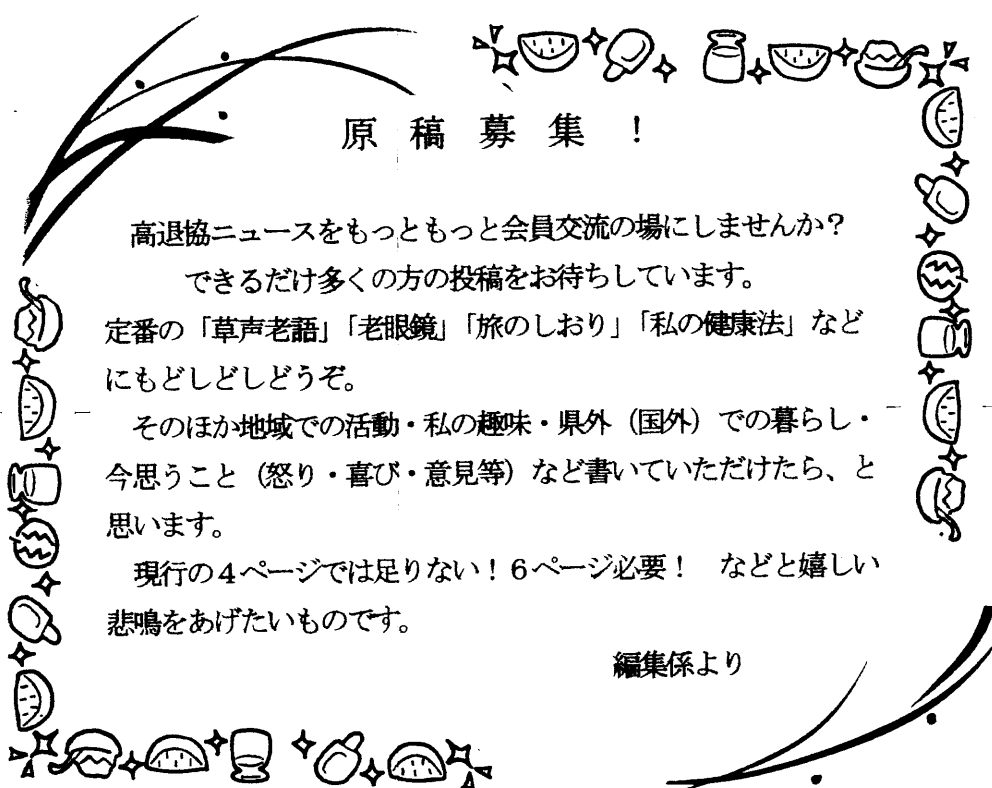 原稿募集！
高退協ニュースをもっともっと会員交流の場にしませんか？
できるだけ多くの方の投稿をお待ちしています。
定番の「草声老語」「老眼鏡」「旅のしおり」「私の健康法」など
にもどしどしどうぞ。
そのほか地域での活動・私の趣味・県外（国外）での暮らし・
今思うこと（怒り・喜び・意見等）など書いていただけたら、と
思います。
現行の４ページでは足りない！６ページ必要！　などと嬉しい
悲鳴をあげたいものです。
編集係より